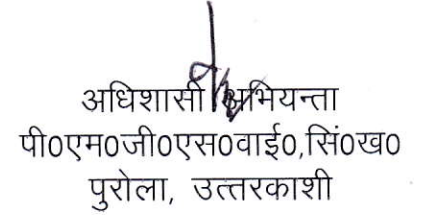 अधिशासी अभियन्ता
पी०एम०जी०एस०वाई०,सिं०ख०
पुरोला, उत्तरकाशी